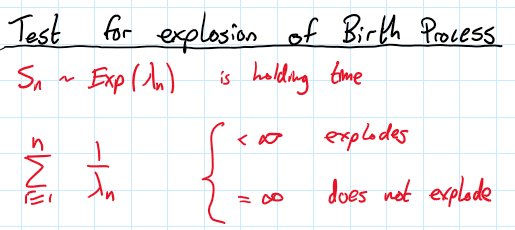 Test for explosion of Birth Process
Sₙ ~ Exp(λₙ) is holding time
n
∑ 1/λₙ { < ∞ explodes
i=1 = ∞ does not explode